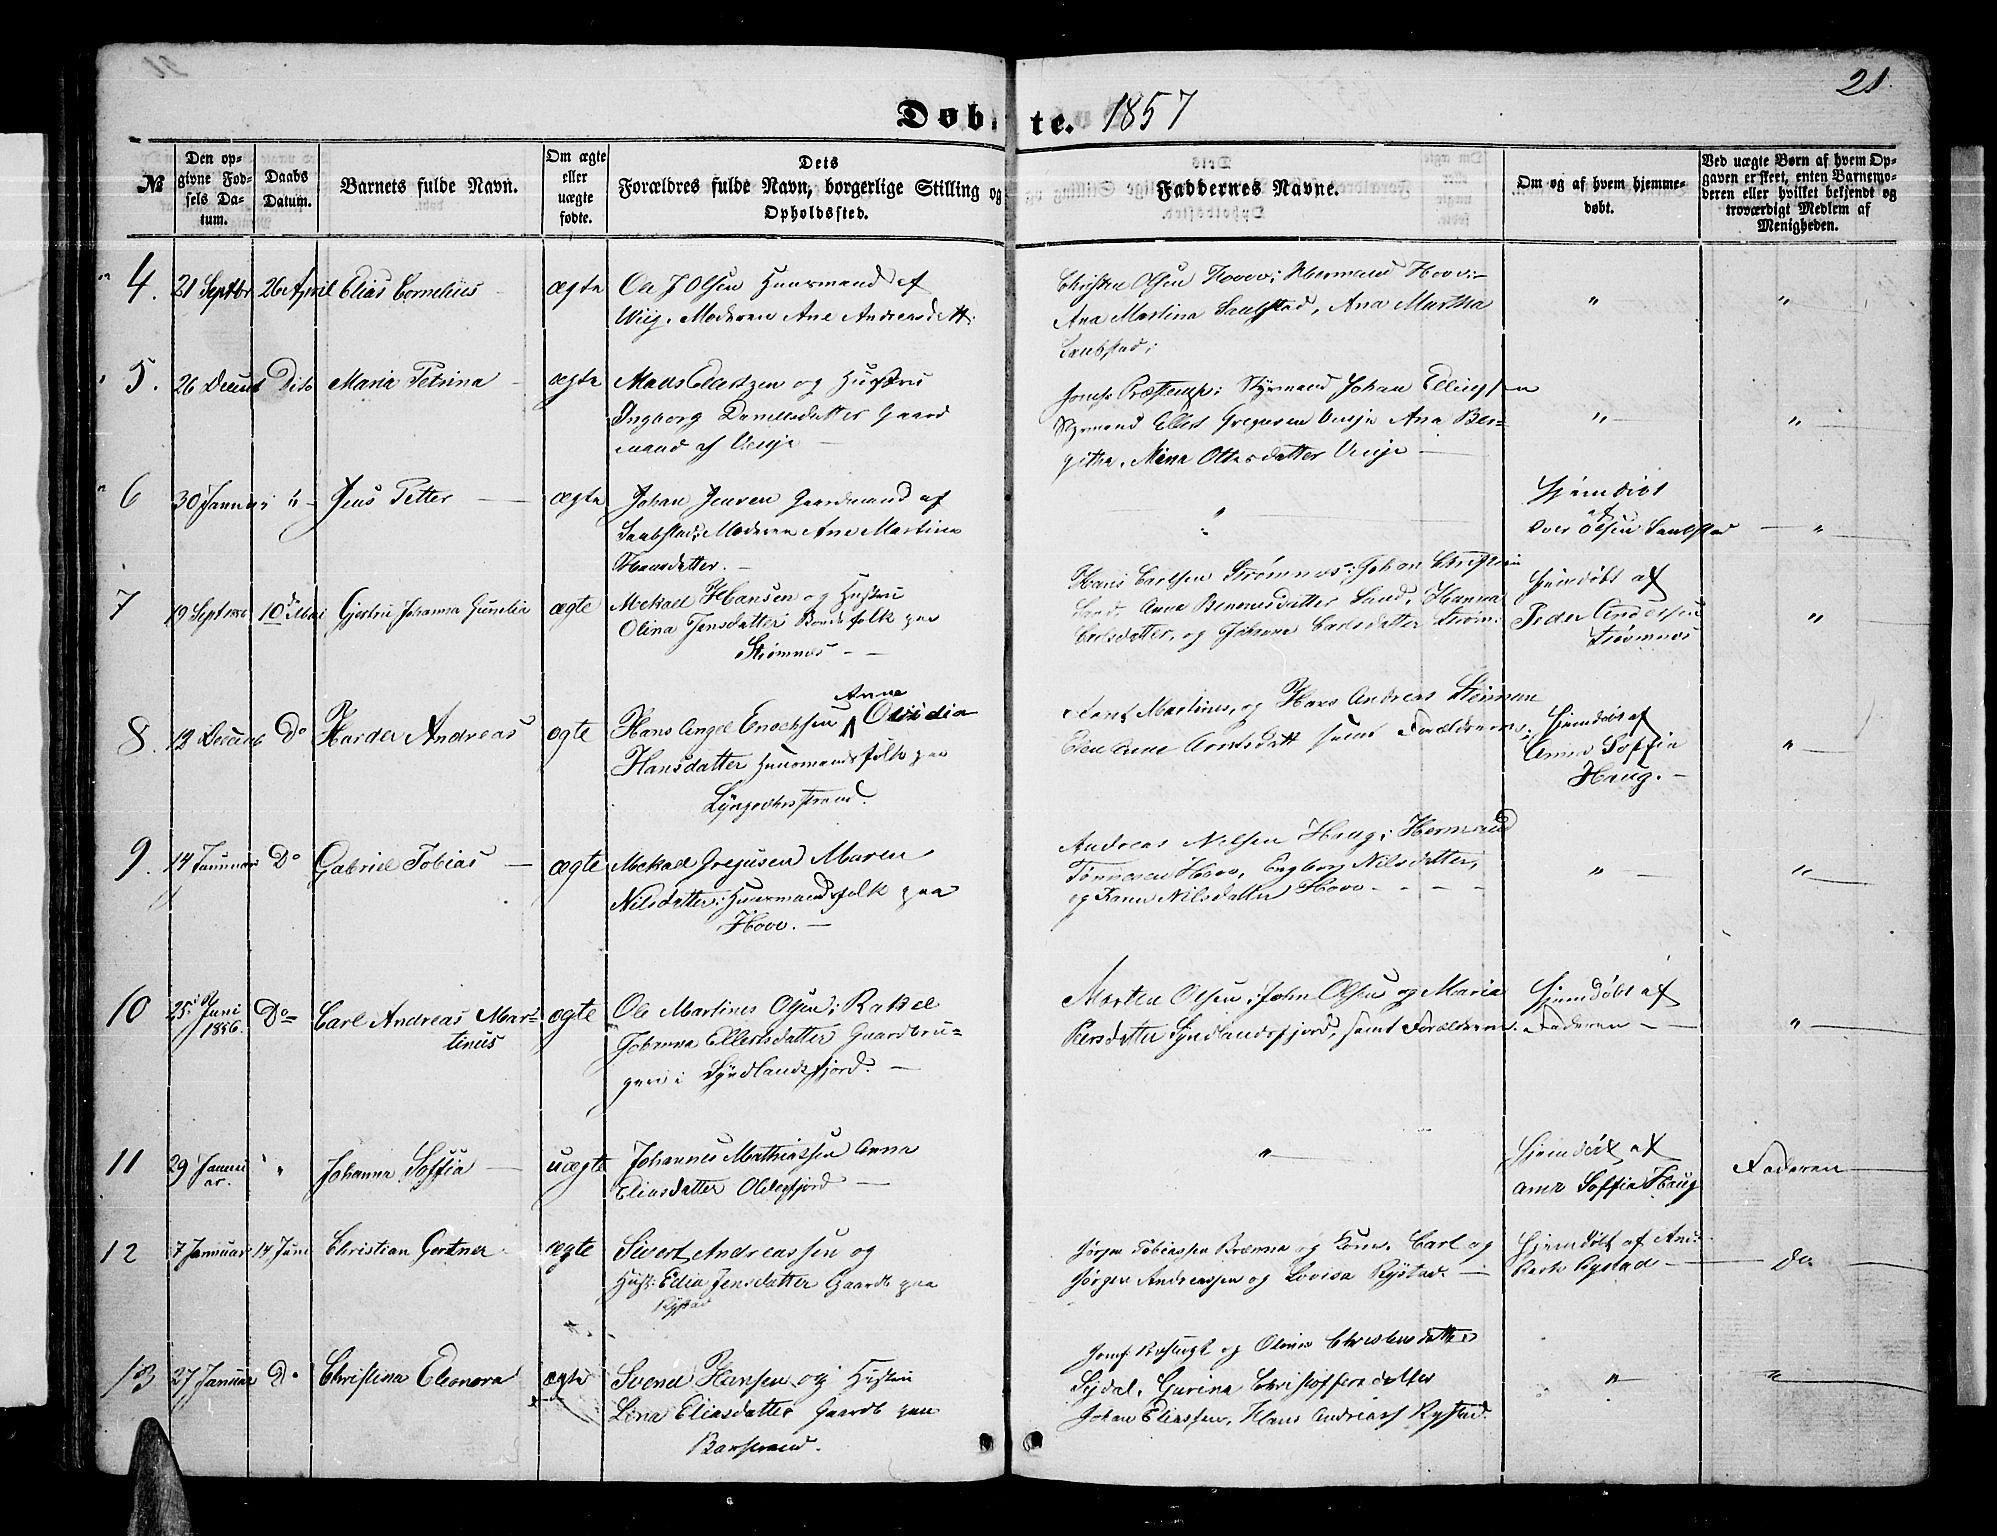 21.
Døbte. 1857
№
Den op-
givne Fød-
sels Da-
tum.
Daabs
Datum.
Barnets fulde Navn.
Om ægte
eller
uægte
fødte.
Dets
Forældres fulde Navn, borgerlige Stilling og
Opholdssted.
Faddernes Navne.
Om og af hvem hjemme-
døbt.
Ved uægte Børn af hvem Op-
gaven er skeet, enten Barnemo-
deren eller hvilket bekjendt og
troværdigt Medlem af
Menigheden.
4. 21 Septbr 26 April Elias Cornelius ægte
Ole J Olsen Huusmand af
Wiig. Moderen Ane Andreasdatt:
Christen Olsen Hoov; Hermand Hoov:
Ana Martina Saubstad, Ana Martha
Saubstad;
" "
5. 26 Decmb Dito Maria Petrina ægte
Mads Ellertzen og Hustru
Ingborg Danielsdatter Gaard
mand af Venje
Styrmand Johan Ellingsen
Styrmand Ellert Gregusen Venje Ana Ber-
githa, Mina Ottosdatter Venje
" "
6 30 Januar " Jens Petter ægte
Johan Jensen Gaardmand af
Saubstad; Moderen Ane Martina
Hansdatter.
"
Hjemdøbt
af
Iver Olsen Saubstad
"
7 19 Sept 1856 10d Mai Gjertru Johanna Gunelia ægte
Mekael Hansen og Hustru
Olina Jensdatter Bondefolk paa
Strømnes
Hans Carlsen Strømnes; Johan Christian
Sand, Anne Benonisdatter Sand, Hanna
Carlsdatter, og Johanna Carlsdatter Strøm:
Hjemdøbt af
Peder Andersen
Strømnes
"
8. 12 Decemb Do Harder Andreas ægte
Anne
Hans Angel Enochsen Ovidia
Hansdatter Huusmandsfolk paa
Lyngedalsstrand.
Martines, og Hans Andreas
Elen Anne Arntsdatt samt Forældrene;
Hjemdøbt af
Anne Soffia
Haug.
"
9. 14 Januar Do Gabriel Tobias ægte
Mekael Gregusen Maren
Nilsdatter; Huusmandsfolk paa
Hoov.
Andreas Nelsen Haug; Hermand
Tønnesen Hoov, Engborg Nilsdatter,
og Karen Nilsdatter Hoov
" "
10 25. Juni
1856. Do Carl Andreas Mar-
tinus ægte
Ole Martines Olsen; Rakel
Johanna Ellertsdatter Gaardbru-
gere i Syndlandsfjord.
Morten Olsen; John Olsen og Maria
Persdatter Syndlandsfjord, samt Forældrene.
Hjemdøbt af
Faderen
"
11 29 Janu
ar. " Johanna Soffia uægte
Johannes Mathiassen Anna
Eliasdatter Olderfjord
"
Hjemdøbt af
Ane Soffia Haug
Faderen
12 7 Januar 14 Juni Christian Gertner ægte
Sivert Andreassen og
Hust: Edia Jensdatter Gaardb paa
Rystad
Jørgen Tobiassen Brænna og Kone. Carl og
Jørgen Andreassen og Lovisa Rystad.
Hjemdøbt af And:
Rystad
Do
13 27 Januar Do Christina Eleonora ægte
Svend Hansen og Hustru
Lina Eliasdatter Gaardb paa
Barstrand.
og Olavia Christensdatter
Sydal, Gurina Christoffersdatter
Johan Eliassen, Hans Andreas Rystad.
" "